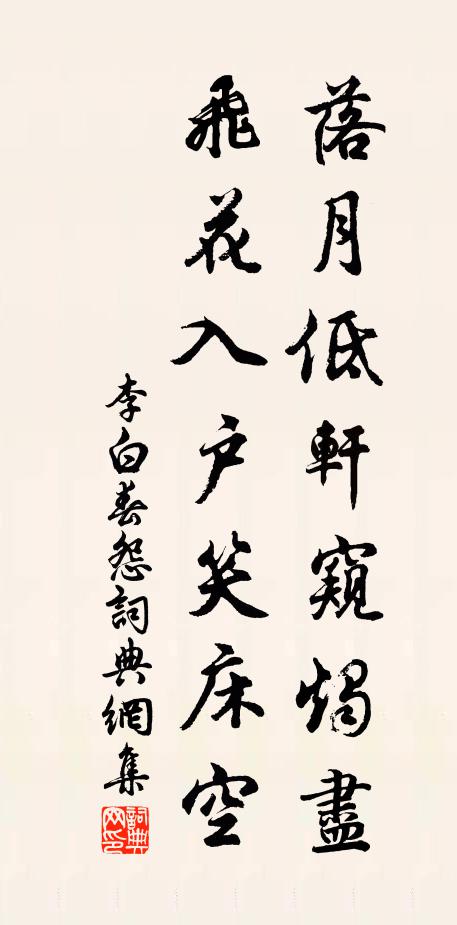 落月低軒窺燭盡
飛花入户笑床空
李白春怨詞典網集
詞典網印